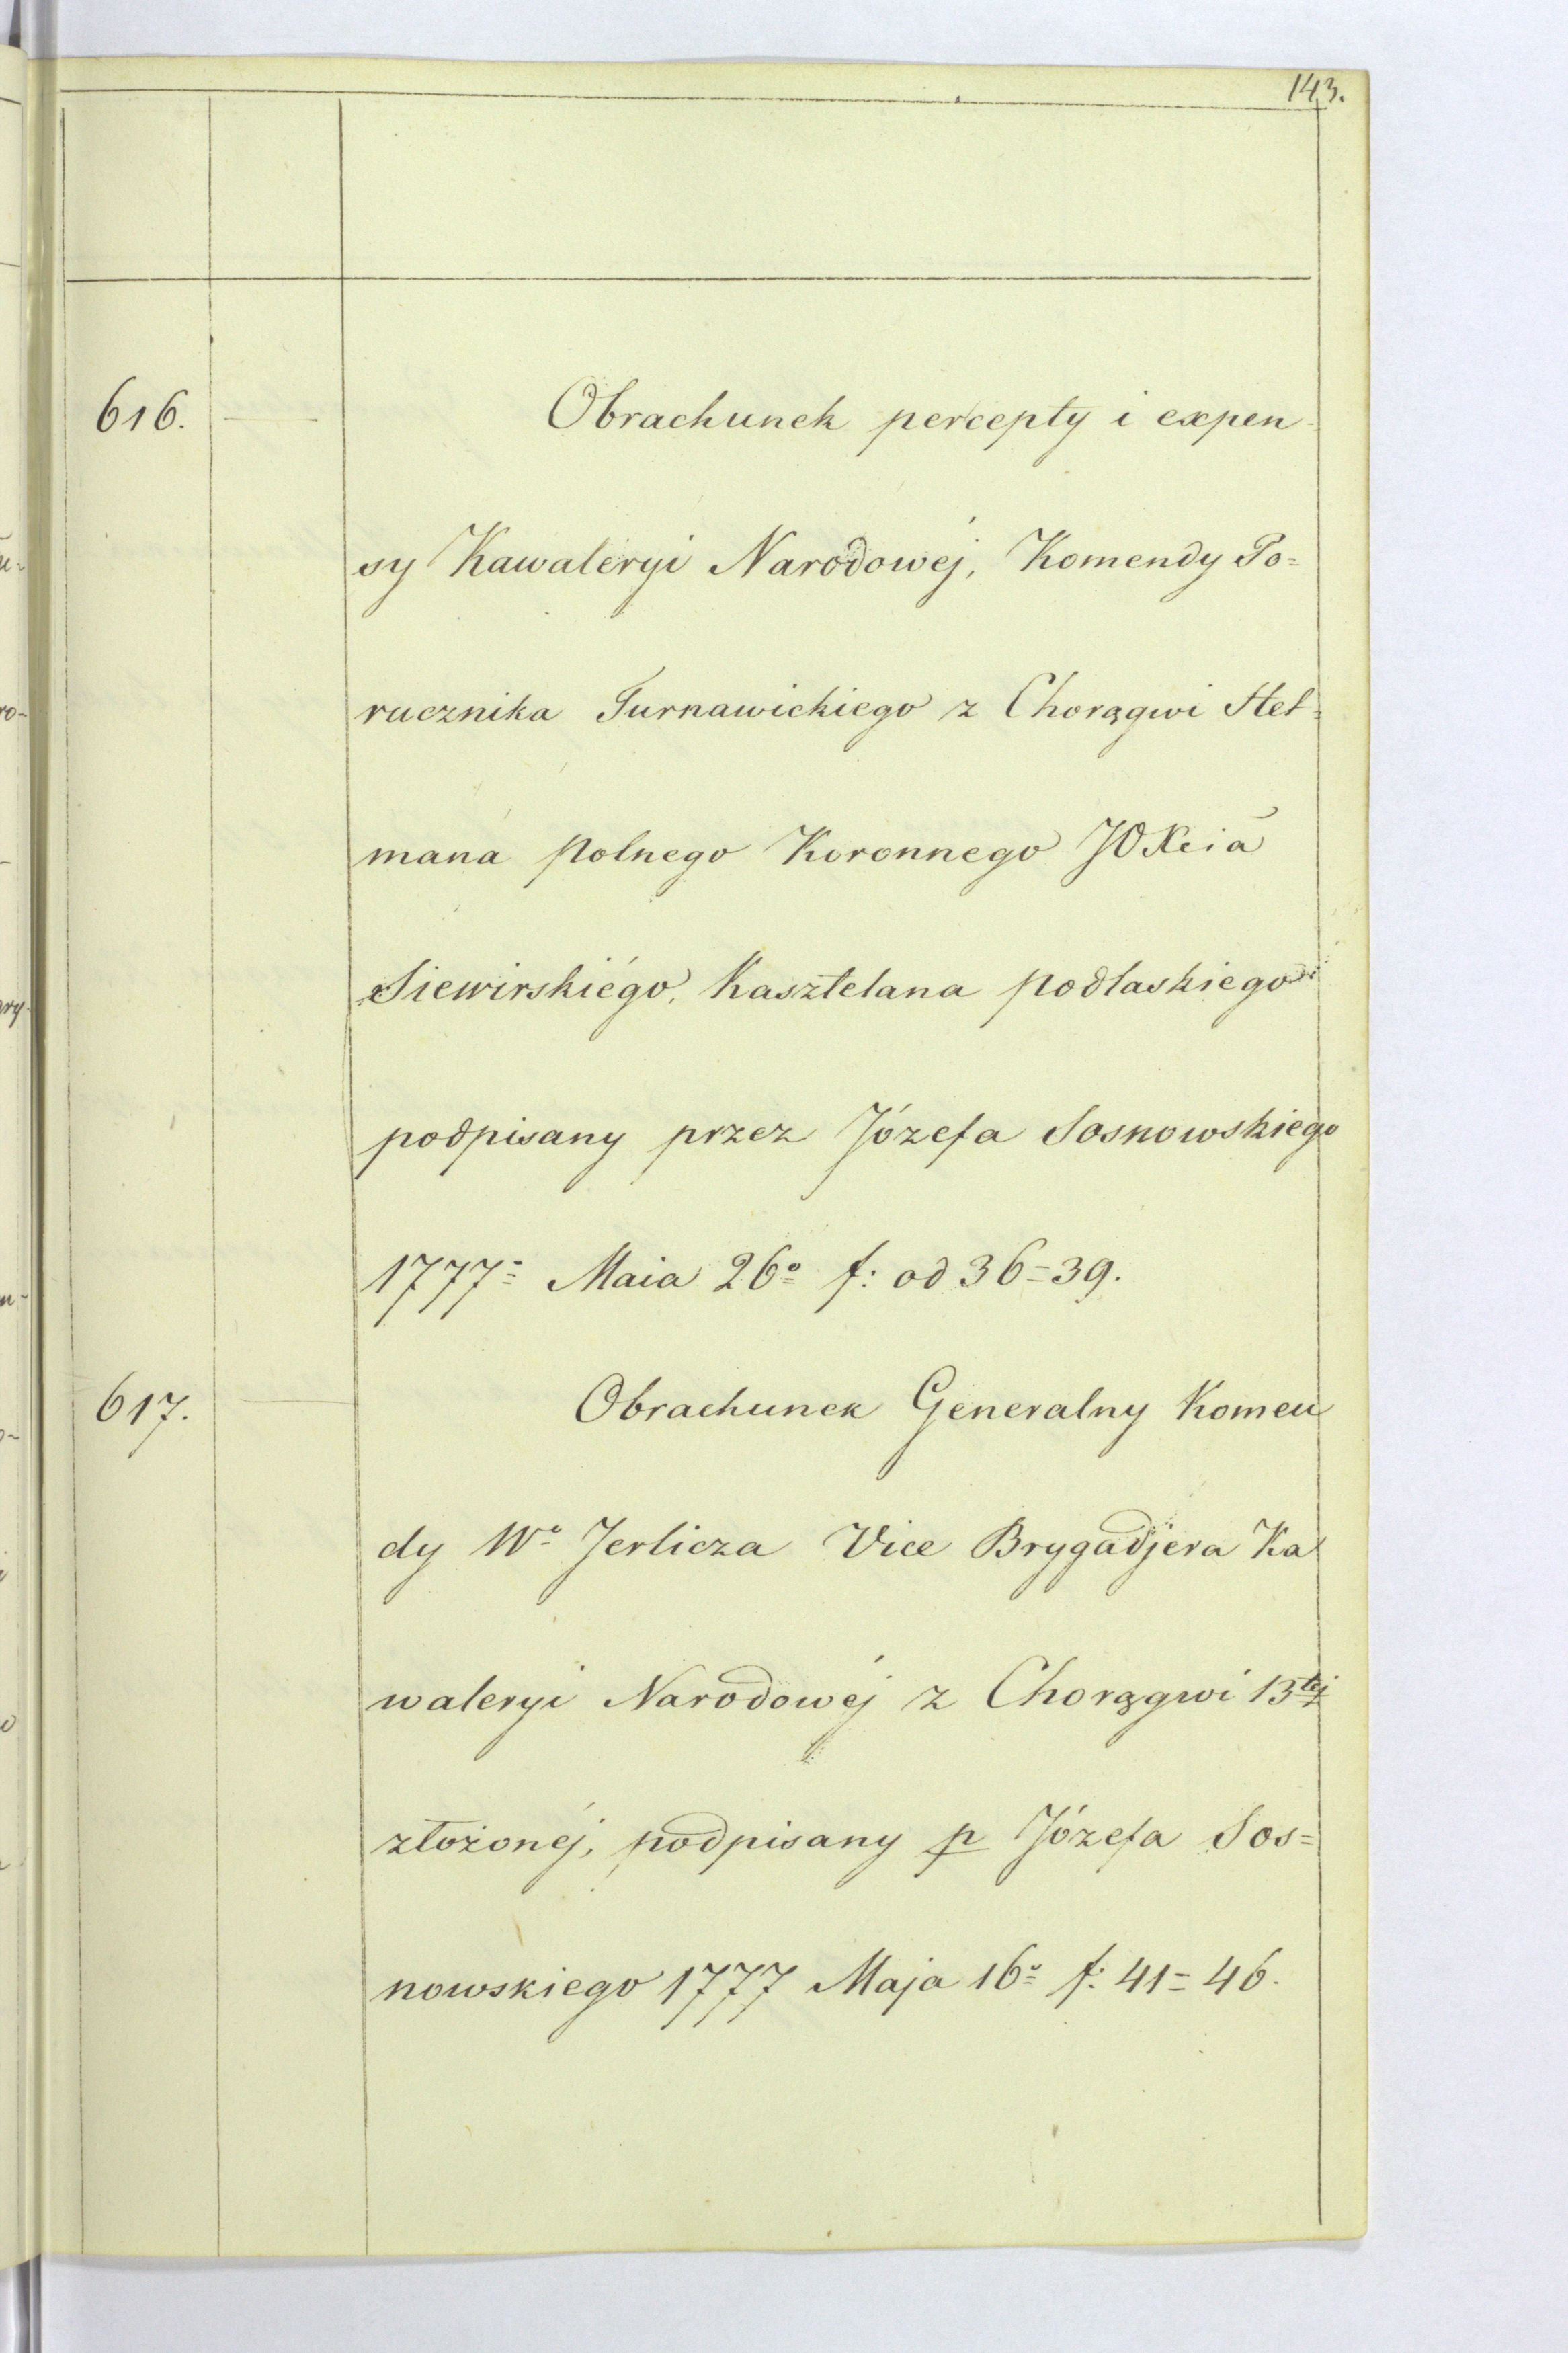 143.
616. Obrachunek percepty i expen-
sy Kawaleryi Narodowéj, Komendy Po=
rucznika Turnawickiego z Chorągwi Het=
mana polnego Koronnego JO Xcia
Siewirskiégo, Kasztelana podlaskiego
podpisany przez Józefa Sosnowskiego
1777= Maia 26º f: od 36=39.
617. Obrachunek Generalny Komen
dy Wº Jerlicza Vice Brygadjera Ka
waleryi Narodowéj z Chorągwi 13tej
złożonéj, podpisany p Józefa Sos=
nowskiego 1777 Maja 16º f: 41=46.